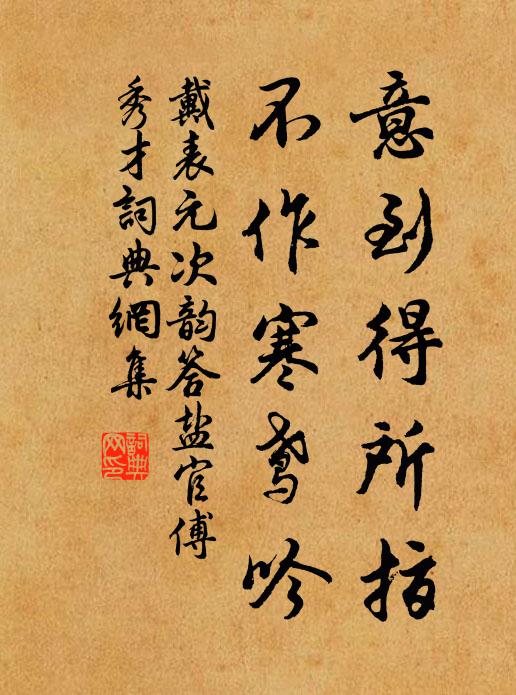 意到得所
不作寒鸢吟
戴表元次韵答盐官傅
秀才詞典網集
詞典
网印